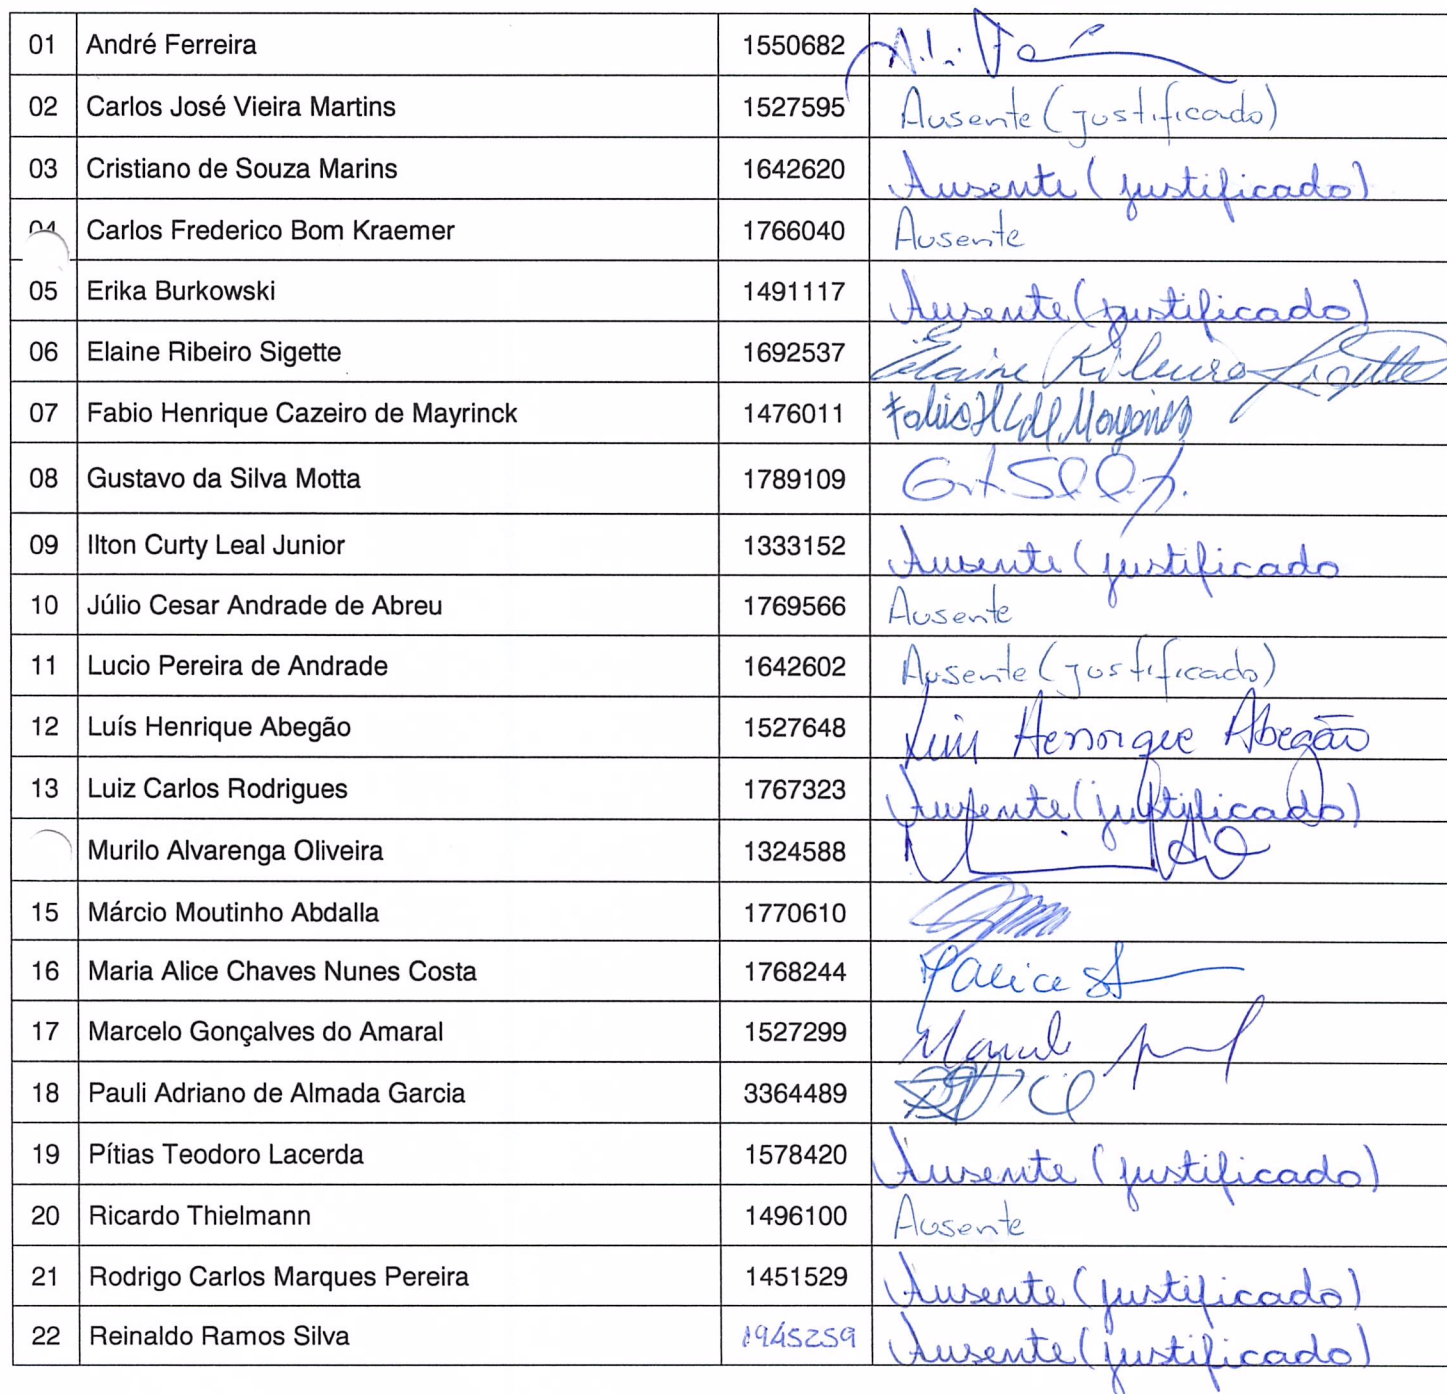 01 André Ferreira 1550682
02 Carlos José Vieira Martins 1527595 Ausente (justificado)
03 Cristiano de Souza Marins 1642620 Ausente (justificado)
04 Carlos Frederico Bom Kraemer 1766040 Ausente
05 Erika Burkowski 1491117 Ausente (justificado)
06 Elaine Ribeiro Sigette 1692537 Elaine Ribeiro Sigette
07 Fabio Henrique Cazeiro de Mayrinck 1476011
08 Gustavo da Silva Motta 1789109
09 Ilton Curty Leal Junior 1333152 Ausente (justificado
10 Júlio Cesar Andrade de Abreu 1769566 Ausente
11 Lucio Pereira de Andrade 1642602 Ausente (justificado)
12 Luís Henrique Abegão 1527648 Luis Henrique Abegão
13 Luiz Carlos Rodrigues 1767323 Ausente (justificado)
Murilo Alvarenga Oliveira 1324588
15 Márcio Moutinho Abdalla 1770610
16 Maria Alice Chaves Nunes Costa 1768244
17 Marcelo Gonçalves do Amaral 1527299
18 Pauli Adriano de Almada Garcia 3364489
19 Pítias Teodoro Lacerda 1578420 Ausente (justificado)
20 Ricardo Thielmann 1496100 Ausente
21 Rodrigo Carlos Marques Pereira 1451529 Ausente (justificado)
22 Reinaldo Ramos Silva 1945259 Ausente (justificado)